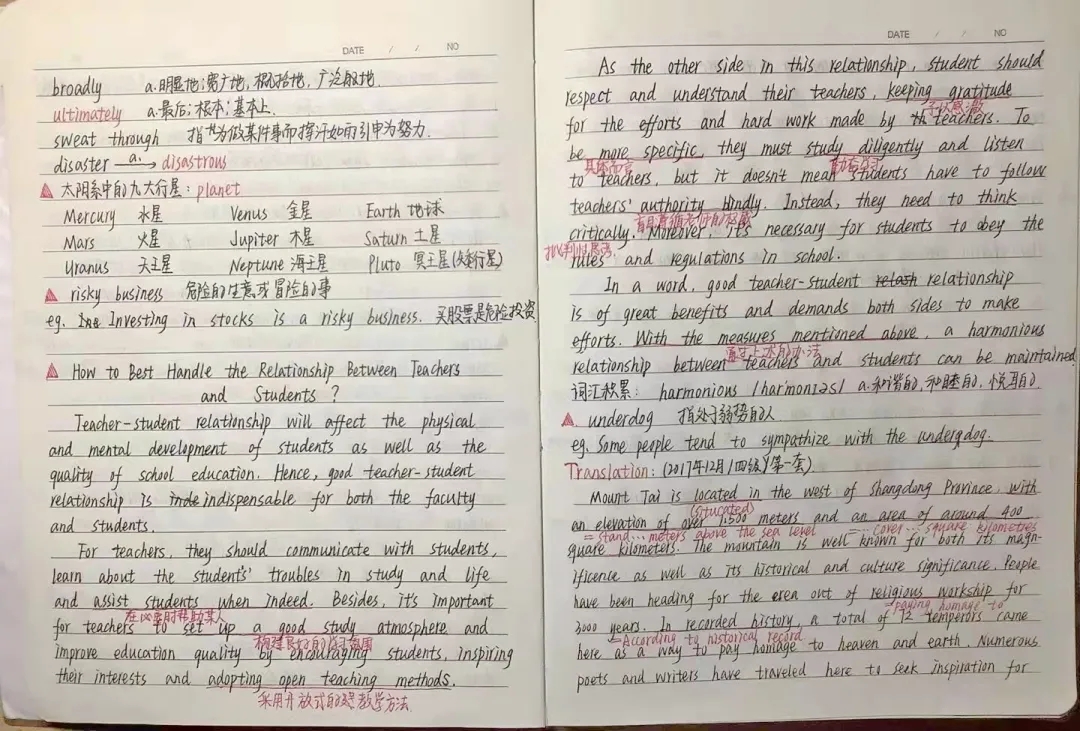 DATE / / NO
broadly a.明显地;宽广地,概括地,广泛的地.
ultimately a.最后;根本;基本上.
sweat through 指为做某件事而挥汗如雨引申为努力.
disaster a.→ disastrous
太阳系中的九大行星: planet
Mercury 水星 Venus 金星 Earth 地球
Mars 火星 Jupiter 木星 Saturn 土星
Uranus 天王星 Neptune 海王星 Pluto 冥王星(矮行星)
risky business 危险的生意或冒险的事
eg. Investing in stocks is a risky business. 买股票是危险投资
How to Best Handle the Relationship Between Teachers
and Students?
Teacher-student relationship will affect the physical
and mental development of students as well as the
quality of school education. Hence, good teacher-student
relationship is inde indispensable for both the faculty
and students.
For teachers, they should communicate with students,
learn about the students' troubles in study and life
and assist students when indeed. Besides, it's important
在必要时帮助某人
for teachers to set up a good study atmosphere and
构建良好的学习氛围
improve education quality by encouraging students, inspiring
their interests and adopting open teaching methods.
采用开放式的教学方法
DATE / / NO
As the other side in this relationship, student should
respect and understand their teachers, keeping gratitude
子以感激
for the efforts and hard work made by th teachers. To
be more specific, they must study diligently and listen
具体而言 勤奋学习
to teachers, but it doesn't mean students have to follow
teachers' authority blindly. Instead, they need to think
盲目遵循老师的权威
critically. Moreover, it's necessary for students to obey the
批判性思考
rules and regulations in school.
In a word, good teacher-student relash relationship
is of great benefits and demands both sides to make
efforts. With the measures mentioned above, a harmonious
通过上述的办法
relationship between teachers and students can be maintained
词汇积累: harmonious /harˈmoniəs/ a.和谐的,和睦的,悦耳的
underdog 指处于弱势的人
eg. Some people tend to sympathize with the undergdog.
Translation: (2017年12月/四级)(第一套)
Mount Tai is located in the west of Shangdong Province with
(situcated)
an elevation of over 1,500 meters and an area of around 400
= stand... meters above the sea level = cover... square kilometres
square kilometers. The mountain is well known for both its magn-
ificence as well as its historical and culture significance. People
have been heading for the area out of religious workship for
paying homage to
3000 years. In recorded history, a total of 12 temperors came
= According to historical record
here as a way to pay homage to heaven and earth. Numerous
poets and writers have traveled here to seek inspiration for